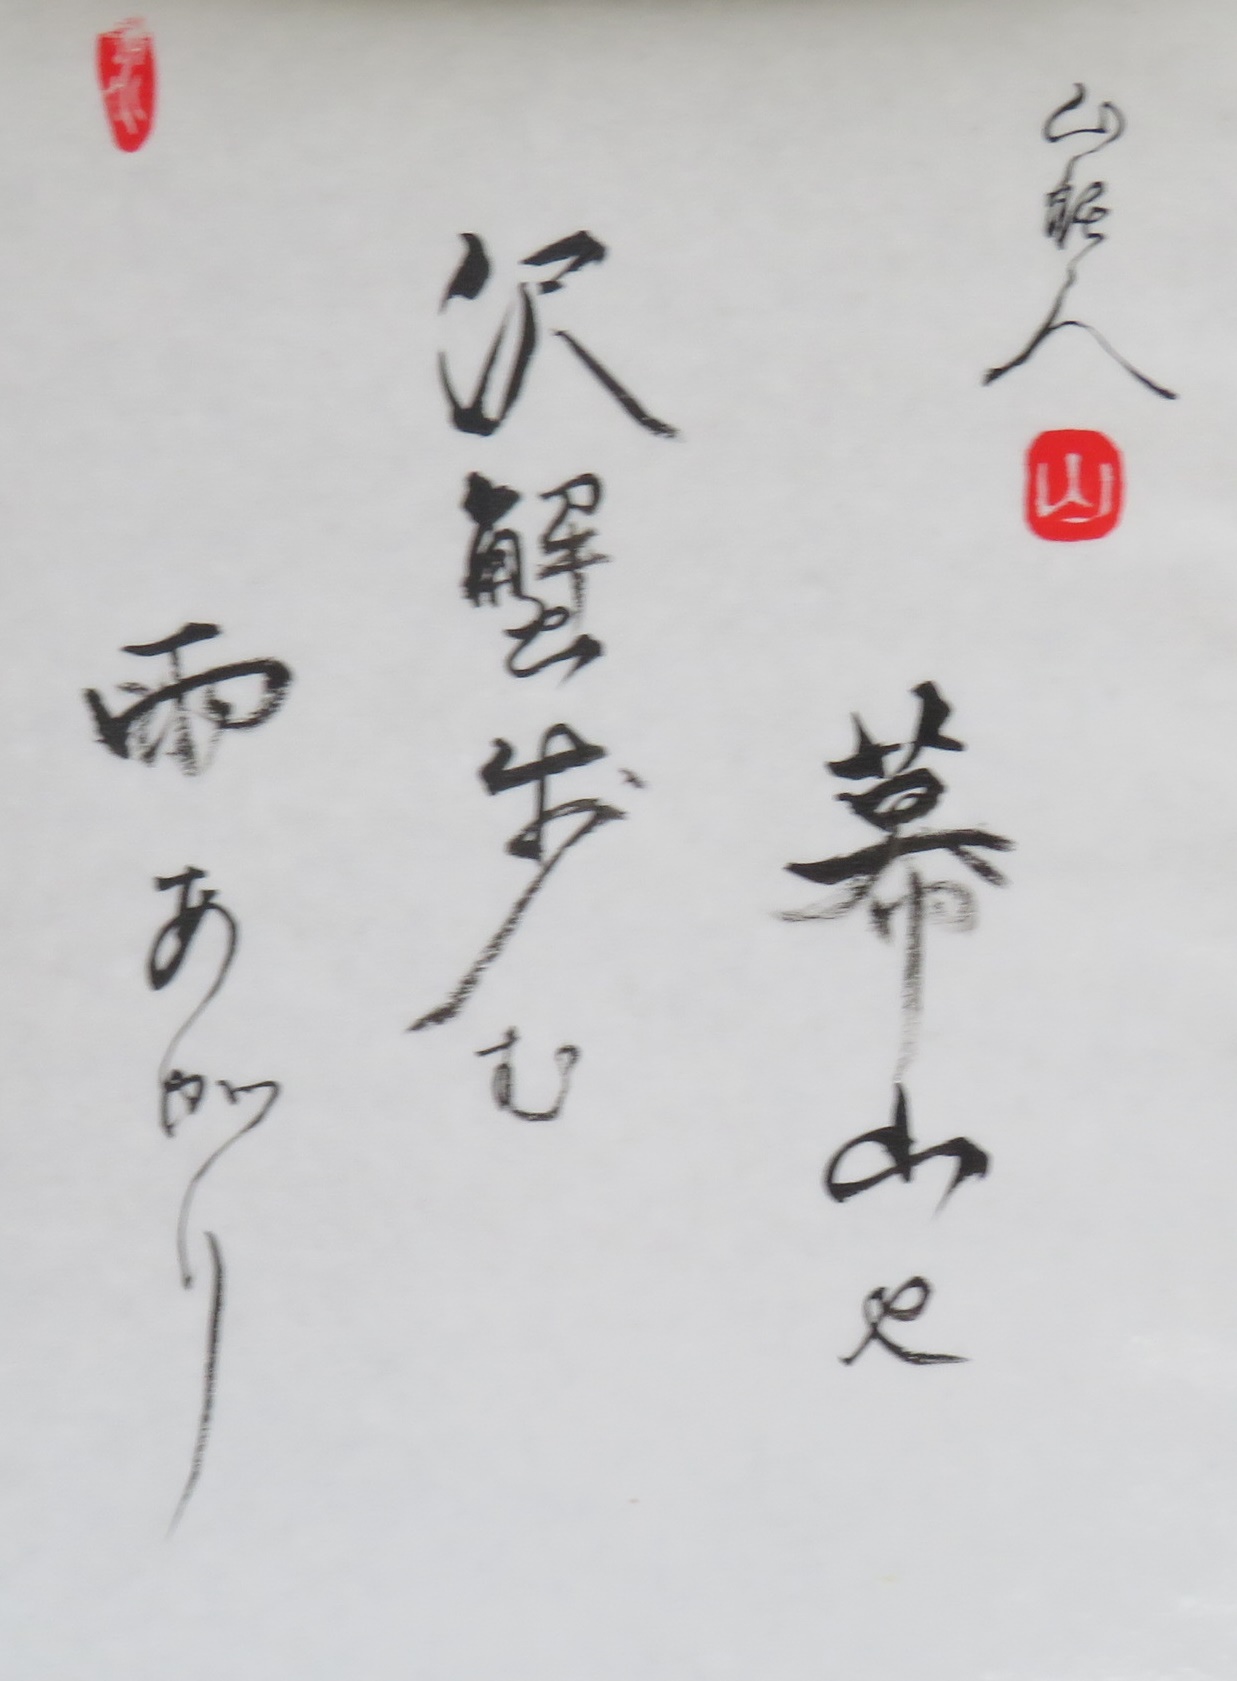 山眠人
山
幕山や
沢蟹歩む
雨あがり